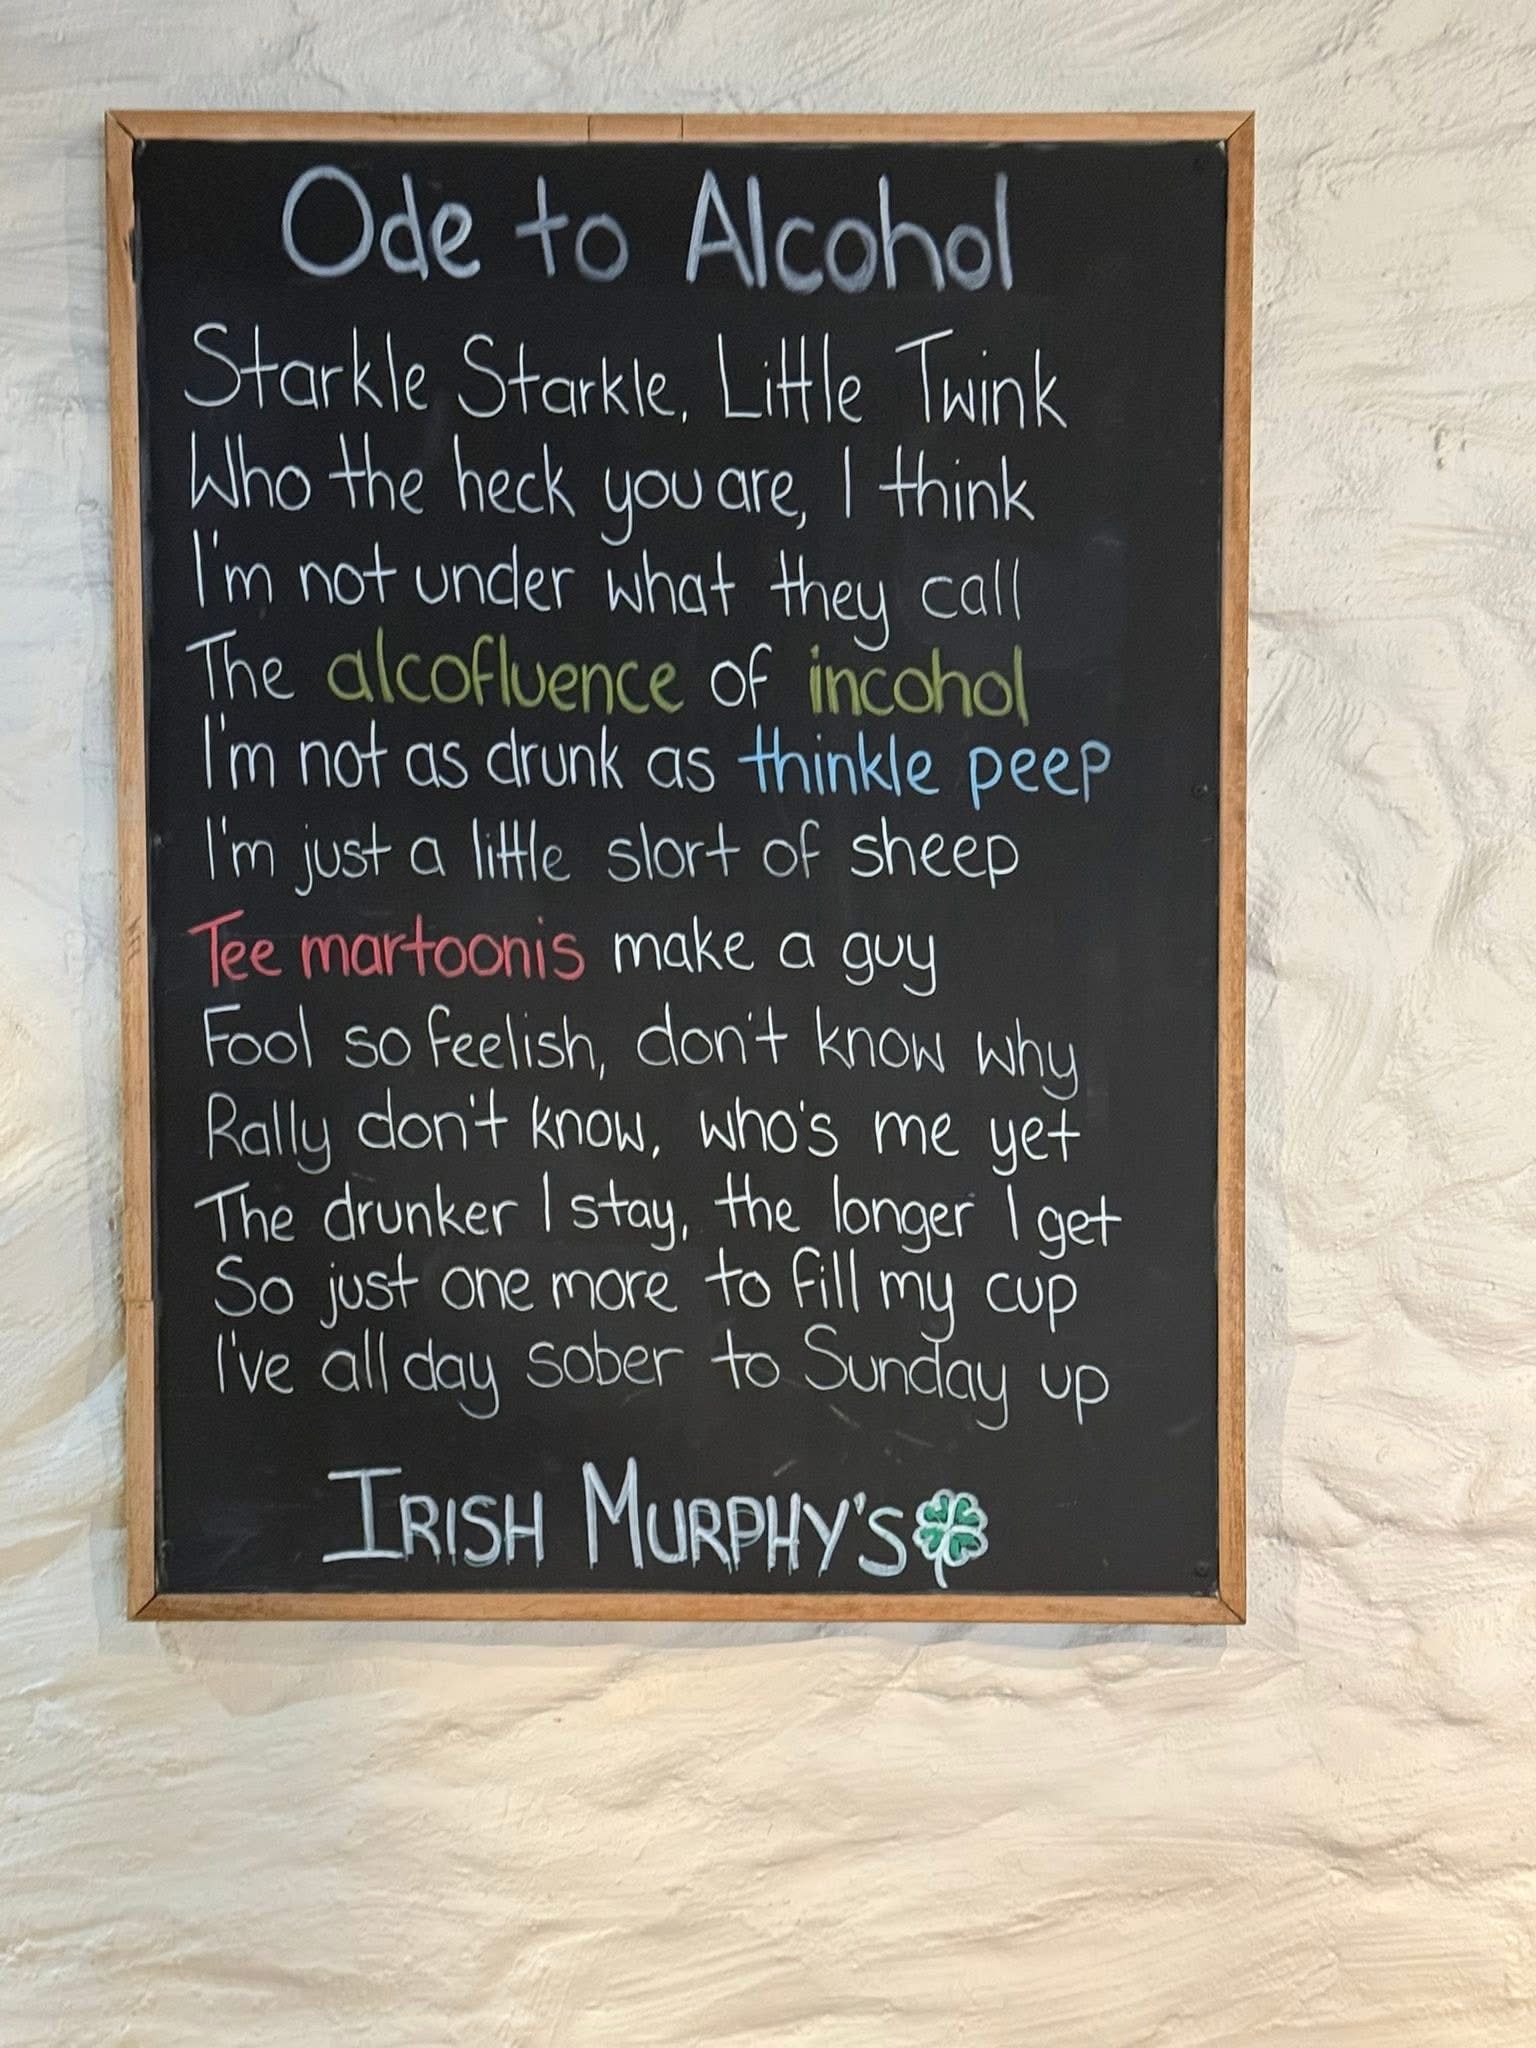 Ode to Alcohol
Starkle Starkle, Little Twink
Who the heck you are, I think
I'm not under what they call
The alcofluence of incohol
I'm not as drunk as thinkle peep
I'm just a little slort of sheep
Tee martoonis make a guy
Fool so feelish, don't know why
Rally don't know, who's me yet
The drunker I stay, the longer I get
So just one more to fill my cup
I've all day sober to Sunday up
IRISH MURPHY'S